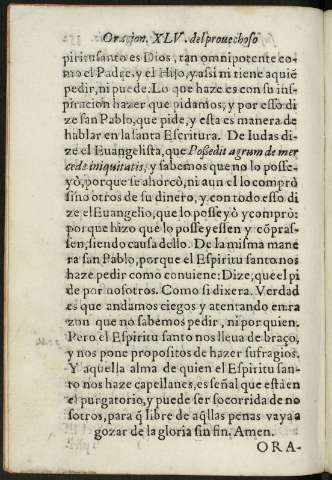 Oracion. XLV. del prouechoso
piritu santo es Dios, tan omnipotente co-
mo el Padre, y el Hijo, y assi ni tiene a quié
pedir, ni puede. Lo que haze es con su ins-
piracion hazer que pidamos, y por esso di
ze san Pablo, que pide, y esta es manera de
hablar en la santa Escritura. De Iudas di-
ze el Euangelista, que Possedit agrum de mer
cede iniquitatis, y sabemos que no lo posse-
yò, porque se ahorcò, ni aun el lo comprò
sino otros de su dinero, y con todo esso di
ze el Euangelio, que lo posseyò y comprò:
porque hizo que lo posseyessen y cōpras-
sen, siendo causa dello. De la misma mane
ra san Pablo, porque el Espiritu santo nos
haze pedir como conuiene: Dize, que el pi
de por nosotros. Como si dixera. Verdad
es que andamos ciegos y atentando en ra
zon que no sabemos pedir, ni por quien.
Pero el Espiritu santo nos lleua de braço,
y nos pone propositos de hazer sufragios.
Y aquella alma de quien el Espiritu san-
to nos haze capellanes, es señal que està en
el purgatorio, y puede ser socorrida de no
sotros, para q̃ libre de aq̃llas penas vaya a
gozar de la gloria sin fin. Amen.
ORA-